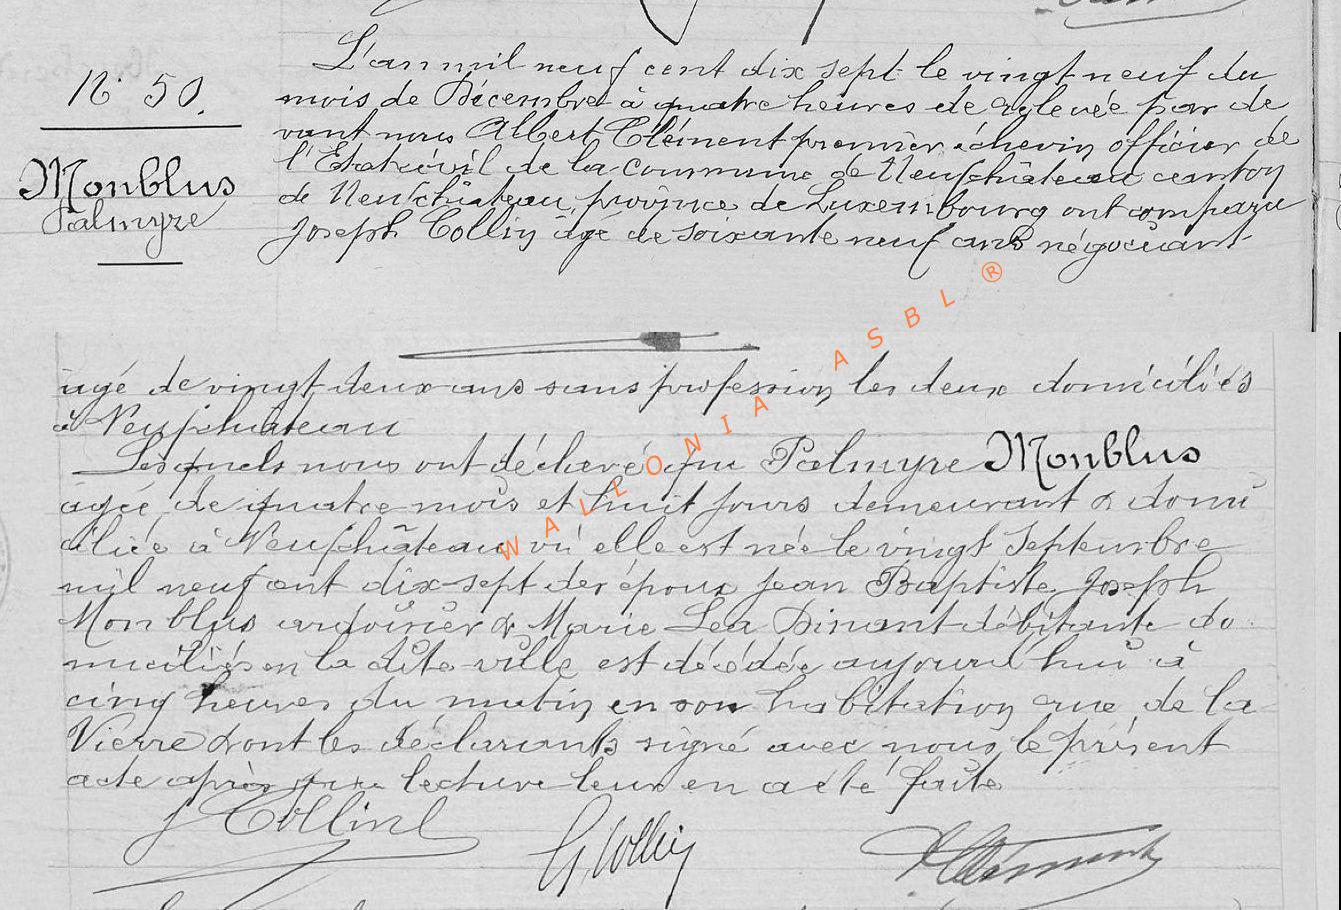 N° 50.
Monblus
Palmyre
L'an mil neuf cent dix sept le vingt neuf du
mois de Décembre à quatre heures de relevée par de
vant nous Albert Clément premier échevin officier de
l'Etat civil de la commune de Neufchâteau canton
de Neufchâteau province de Luxembourg ont comparu
Joseph Collin âgé de soixante neuf ans négociant
âgé de vingt deux ans sans profession les deux domiciliés
à Neufchateau
Lesquels nous ont décheré que Palmyre Monblus
agée de quatre mois et huit jours demeurant & domi
ciliée à Neufchâteau où elle est née le vingt Septembre
mil neuf cent dix-sept des époux Jean Baptiste Joseph
Monblus ardoisier & Marie Lea Dinant débitante do
miciliés en la dite ville est décédée aujourd'hui à
cinq heures du matin en son habitation rue de la
Vierre dont les déclarants signé avec nous le présent
acte après que lecture leur en a été faite
J Collin
G. Collin
A Clément
WALLONIA ASBL ®